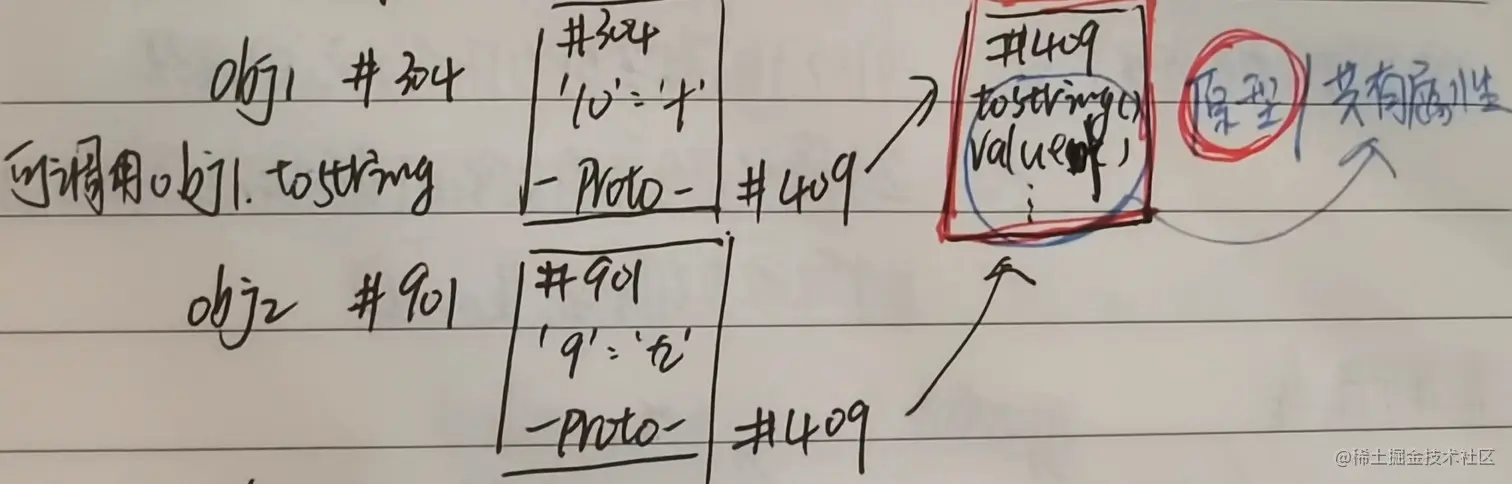 obj1 #304
#304
'10':'十'
-Proto- #409
可调用obj1.tostring
#409
tostring()
valueof()
⋮
原型/共有属性
obj2 #901
#901
'9':'九'
-Proto- #409
@稀土掘金技术社区